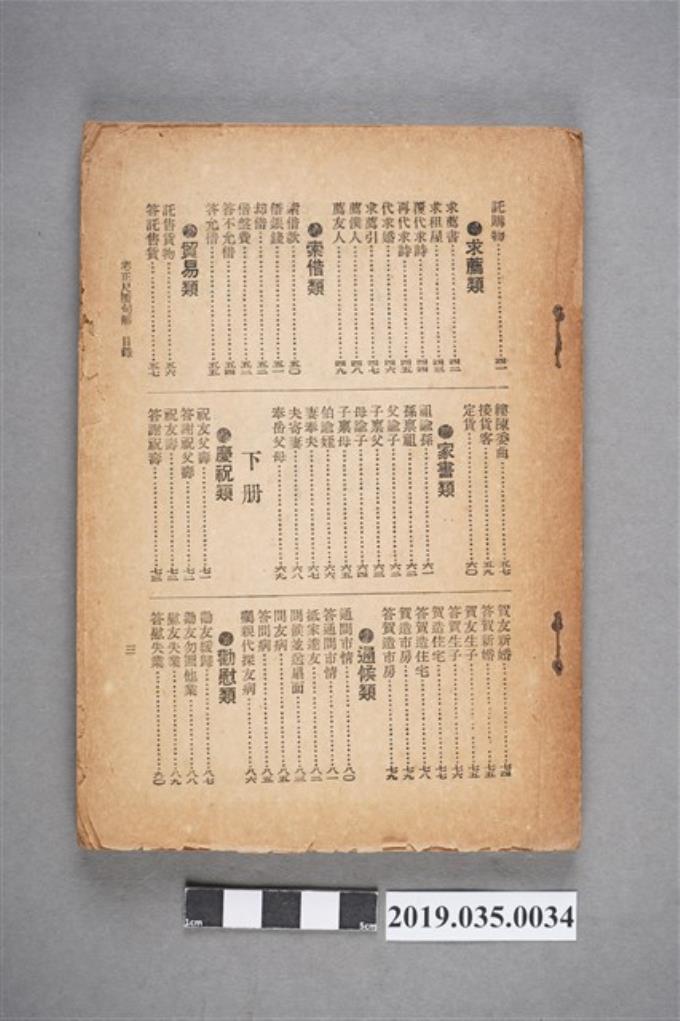 託購物……四一
求薦類
求薦書……四二
求租屋……四三
覆代求詩……四四
再代求詩……四五
代求婚……四六
求薦引……四七
薦僕人……四八
薦友人……四九
索借類
索借款……五〇
借銀錢……五一
却借……五二
借盤費……五三
答不允借……五四
答允借……五五
貿易類
託售貨物……五六
答託售貨……五七
縷陳委曲……五七
接貨客……五九
定貨……六〇
家書類
祖諭孫……六一
孫禀祖……六二
父諭子……六二
子禀父……六三
母諭子……六四
子禀母……六五
伯諭姪……六六
妻奉夫……六七
夫寄妻……六八
奉岳父母……六九
下册
慶祝類
祝友父壽……七一
答謝祝父壽……七一
祝友壽……七二
答謝祝壽……七三
賀友新婚……七四
答賀新婚……七五
賀友生子……七五
答賀生子……七六
賀造住宅……七七
答賀造住宅……七八
賀造市房……七九
答賀造市房……七九
通候類
通問市情……八〇
答通問市情……八一
抵家達友……八二
問候並送扇面……八三
問友病……八五
答問病……八五
囑親代探友病……八六
勸慰類
勸友緩歸……八七
勸友勿圖他業……八八
慰友失業……八九
答慰失業……九〇
尺牘句解 目錄
三
1cm
5cm
2019.035.0034